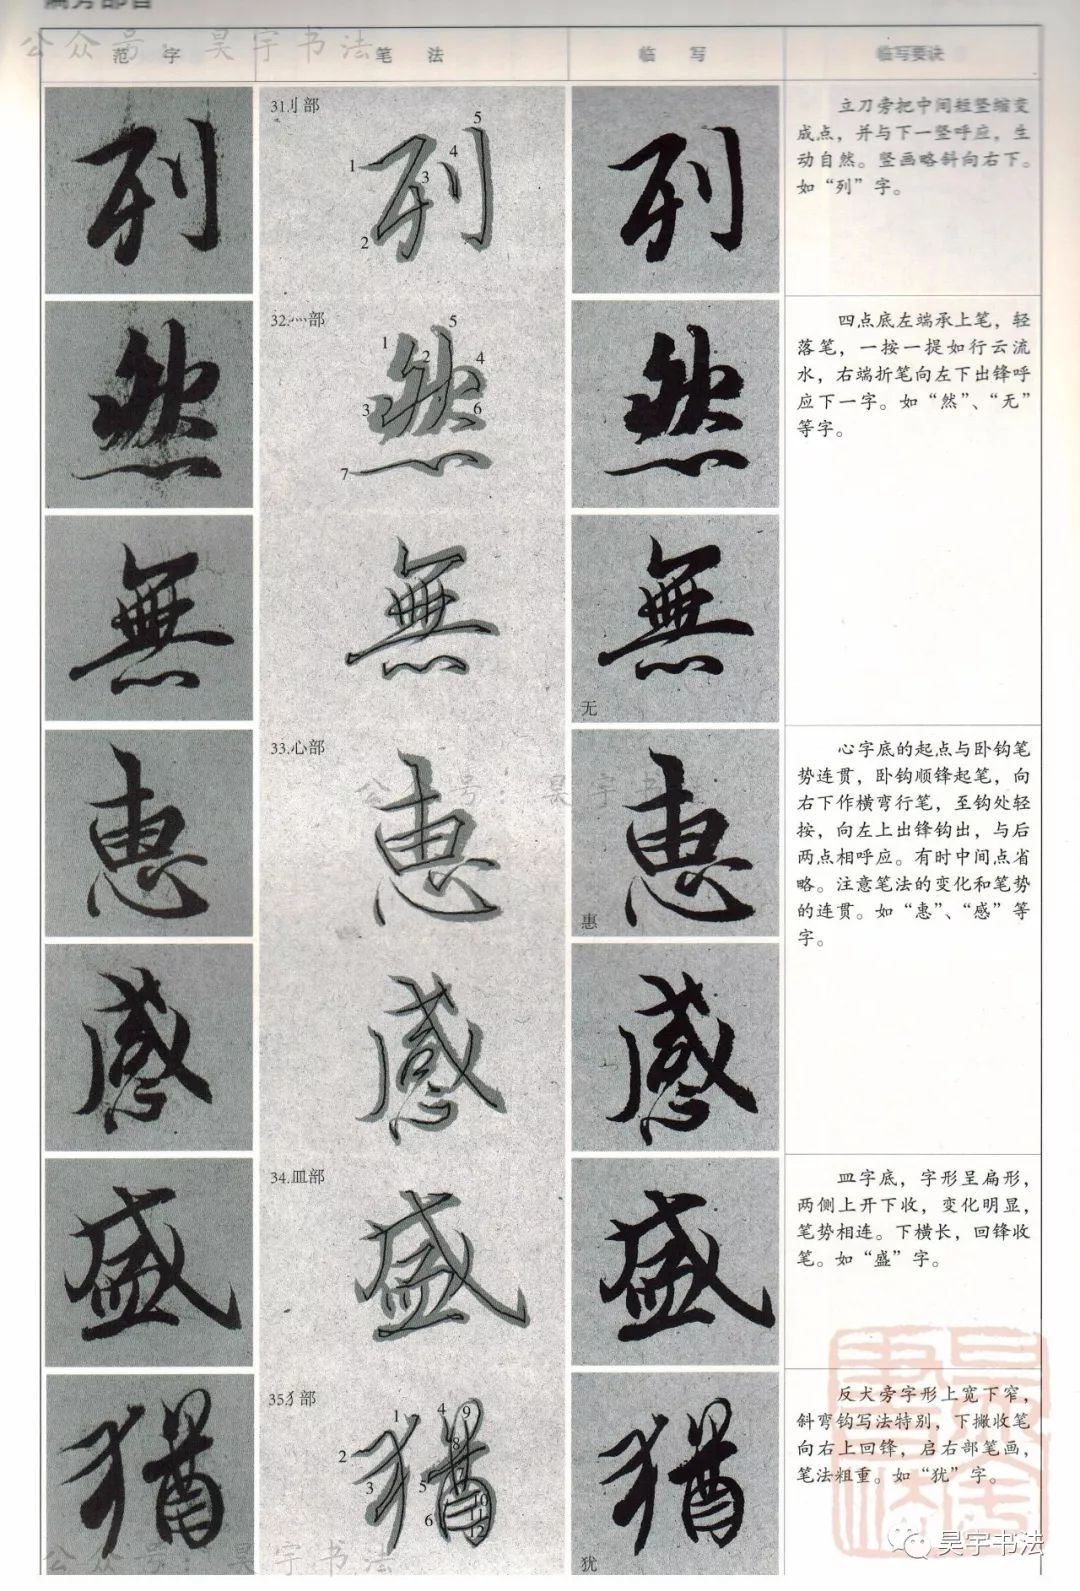 偏旁部首
公众号：昊宇书法
范 字
笔 法
临 写
临写要诀
列
31.刂部
1
2
3
4
5
列
列
立刀旁把中间短竖缩变
成点，并与下一竖呼应，生
动自然。竖画略斜向右下。
如“列”字。
然
32.灬部
1
2
3
4
5
6
7
然
然
四点底左端承上笔，轻
落笔，一按一提如行云流
水，右端折笔向左下出锋呼
应下一字。如“然”、“无”
等字。
無
無
無
无
惠
33.心部
公众号：昊宇书
惠
惠
惠
心字底的起点与卧钩笔
势连贯，卧钩顺锋起笔，向
右下作横弯行笔，至钩处轻
按，向左上出锋钩出，与后
两点相呼应。有时中间点省
略。注意笔法的变化和笔势
的连贯。如“惠”、“感”等
字。
感
感
感
盛
34.皿部
盛
盛
皿字底，字形呈扁形，
两侧上开下收，变化明显，
笔势相连。下横长，回锋收
笔。如“盛”字。
猶
35.犭部
1
2
3
4
5
6
8
9
10
12
猶
猶
犹
反犬旁字形上宽下窄，
斜弯钩写法特别，下撇收笔
向右上回锋，启右部笔画，
笔法粗重。如“犹”字。
公众号：昊宇书法
昊宇书法